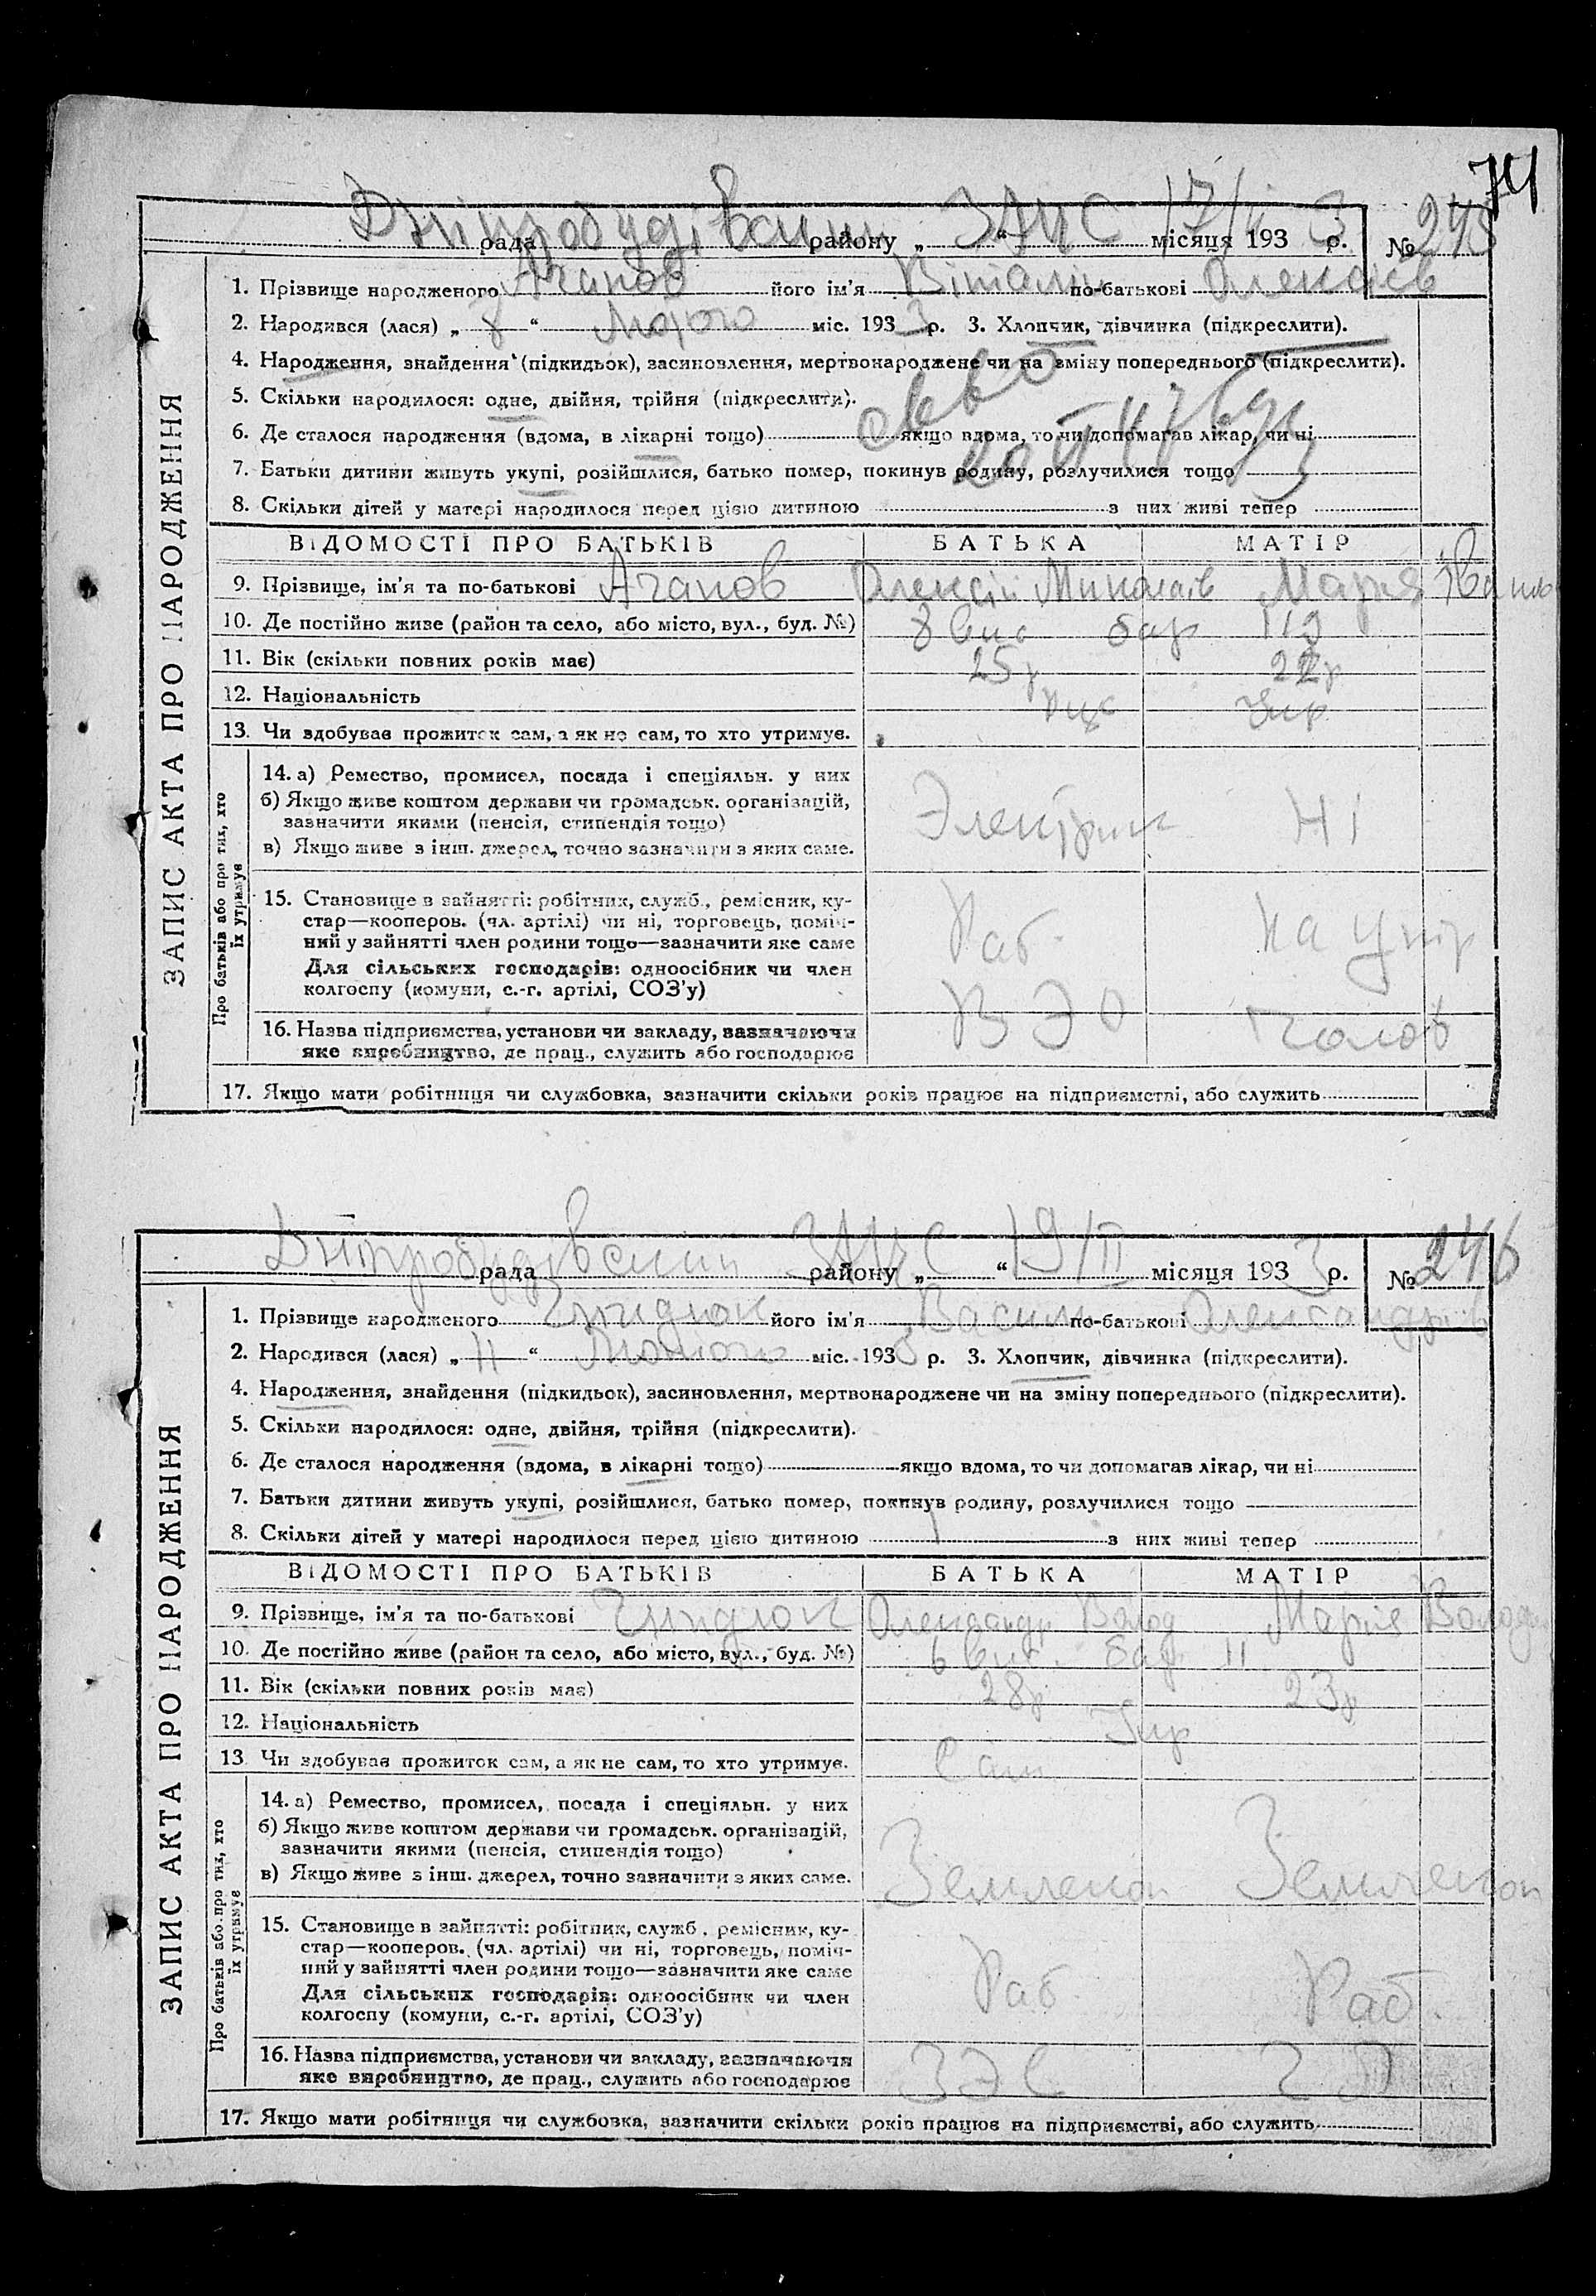 74
Дніпробудівський ЗАЦС 17/II 3
рада району „ “ місяця 193 р. № 245
1. Прізвище народженого Агапов його ім’я Віталій по-батькові Олексіев
2. Народився (лася) „ 8 “ Лютого міс. 193 3 р. 3. Хлопчик, дівчинка (підкреслити).
4. Народження, знайдення (підкидьок), засиновлення, мертвонароджене чи на зміну попереднього (підкреслити).
5. Скільки народилося: одне, двійня, трійня (підкреслити).
6. Де сталося народження (вдома, в лікарні тощо) якщо вдома, то чи допомагав лікар, чи ні
7. Батьки дитини живуть укупі, розійшлися, батько помер, покинув родину, розлучилися тощо
8. Скільки дітей у матері народилося перед цією дитиною з них живі тепер
ЗАПИС АКТА ПРО НАРОДЖЕННЯ
ВІДОМОСТІ ПРО БАТЬКІВ БАТЬКА МАТІР
9. Прізвище, ім’я та по-батькові Агапов Олексій Миколаїв Марія
10. Де постійно живе (район та село, або місто, вул., буд. №) 8 бар
11. Вік (скільки повних років має) 25р 22р
12. Національність Укр
13. Чи здобуває прожиток сам, а як не сам, то хто утримує.
Про батьків або про тих, хто їх утримує
14. а) Ремество, промисел, посада і спеціяльн. у них
б) Якщо живе коштом держави чи громадськ. організацій,
зазначити якими (пенсія, стипендія тощо)
Электрик Ні
в) Якщо живе з інш. джерел, точно зазначити з яких саме.
15. Становище в зайнятті: робітник, служб., ремісник, ку-
стар—кооперов. (чл. артілі) чи ні, торговець, поміч-
ний у зайнятті член родини тощо—зазначити яке саме
Раб. На утр
Для сільських господарів: одноосібник чи член
колгоспу (комуни, с.-г. артілі, СОЗ’у)
16. Назва підприємства, установи чи закладу, зазначаючи
яке виробництво, де прац., служить або господарює
ВЭО
17. Якщо мати робітниця чи службовка, зазначити скільки років працює на підприємстві, або служить
Дніпробудівський ЗАЦС 19/II 3
рада району „ “ місяця 193 р. № 246
1. Прізвище народженого його ім’я Василь по-батькові Олександрів
2. Народився (лася) „ 11 “ Лютого міс. 193 р. 3. Хлопчик, дівчинка (підкреслити).
4. Народження, знайдення (підкидьок), засиновлення, мертвонароджене чи на зміну попереднього (підкреслити).
5. Скільки народилося: одне, двійня, трійня (підкреслити).
6. Де сталося народження (вдома, в лікарні тощо) якщо вдома, то чи допомагав лікар, чи ні
7. Батьки дитини живуть укупі, розійшлися, батько помер, покинув родину, розлучилися тощо
8. Скільки дітей у матері народилося перед цією дитиною 1 з них живі тепер
ЗАПИС АКТА ПРО НАРОДЖЕННЯ
ВІДОМОСТІ ПРО БАТЬКІВ БАТЬКА МАТІР
9. Прізвище, ім’я та по-батькові Олександр Волод Марія Волод
10. Де постійно живе (район та село, або місто, вул., буд. №) 6 бар 11
11. Вік (скільки повних років має) 28р 23р
12. Національність Укр
13. Чи здобуває прожиток сам, а як не сам, то хто утримує. Сам
Про батьків або про тих, хто їх утримує
14. а) Ремество, промисел, посада і спеціяльн. у них
б) Якщо живе коштом держави чи громадськ. організацій,
зазначити якими (пенсія, стипендія тощо)
в) Якщо живе з інш. джерел, точно зазначити з яких саме.
Землекоп Землекоп
15. Становище в зайнятті: робітник, служб., ремісник, ку-
стар—кооперов. (чл. артілі) чи ні, торговець, поміч-
ний у зайнятті член родини тощо—зазначити яке саме
Раб. Раб.
Для сільських господарів: одноосібник чи член
колгоспу (комуни, с.-г. артілі, СОЗ’у)
16. Назва підприємства, установи чи закладу, зазначаючи
яке виробництво, де прац., служить або господарює
ЗЭС
17. Якщо мати робітниця чи службовка, зазначити скільки років працює на підприємстві, або служить